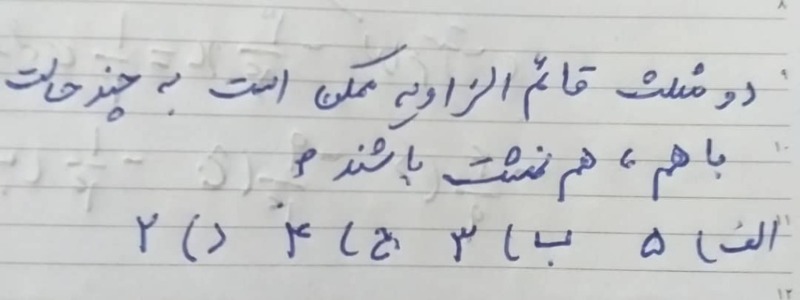 دو مثلث قائم الزاویه ممکن است به چند حالت
با هم، هم نهشت باشند؟
الف) ۵ ب) ۳ ج) ۴ د) ۲